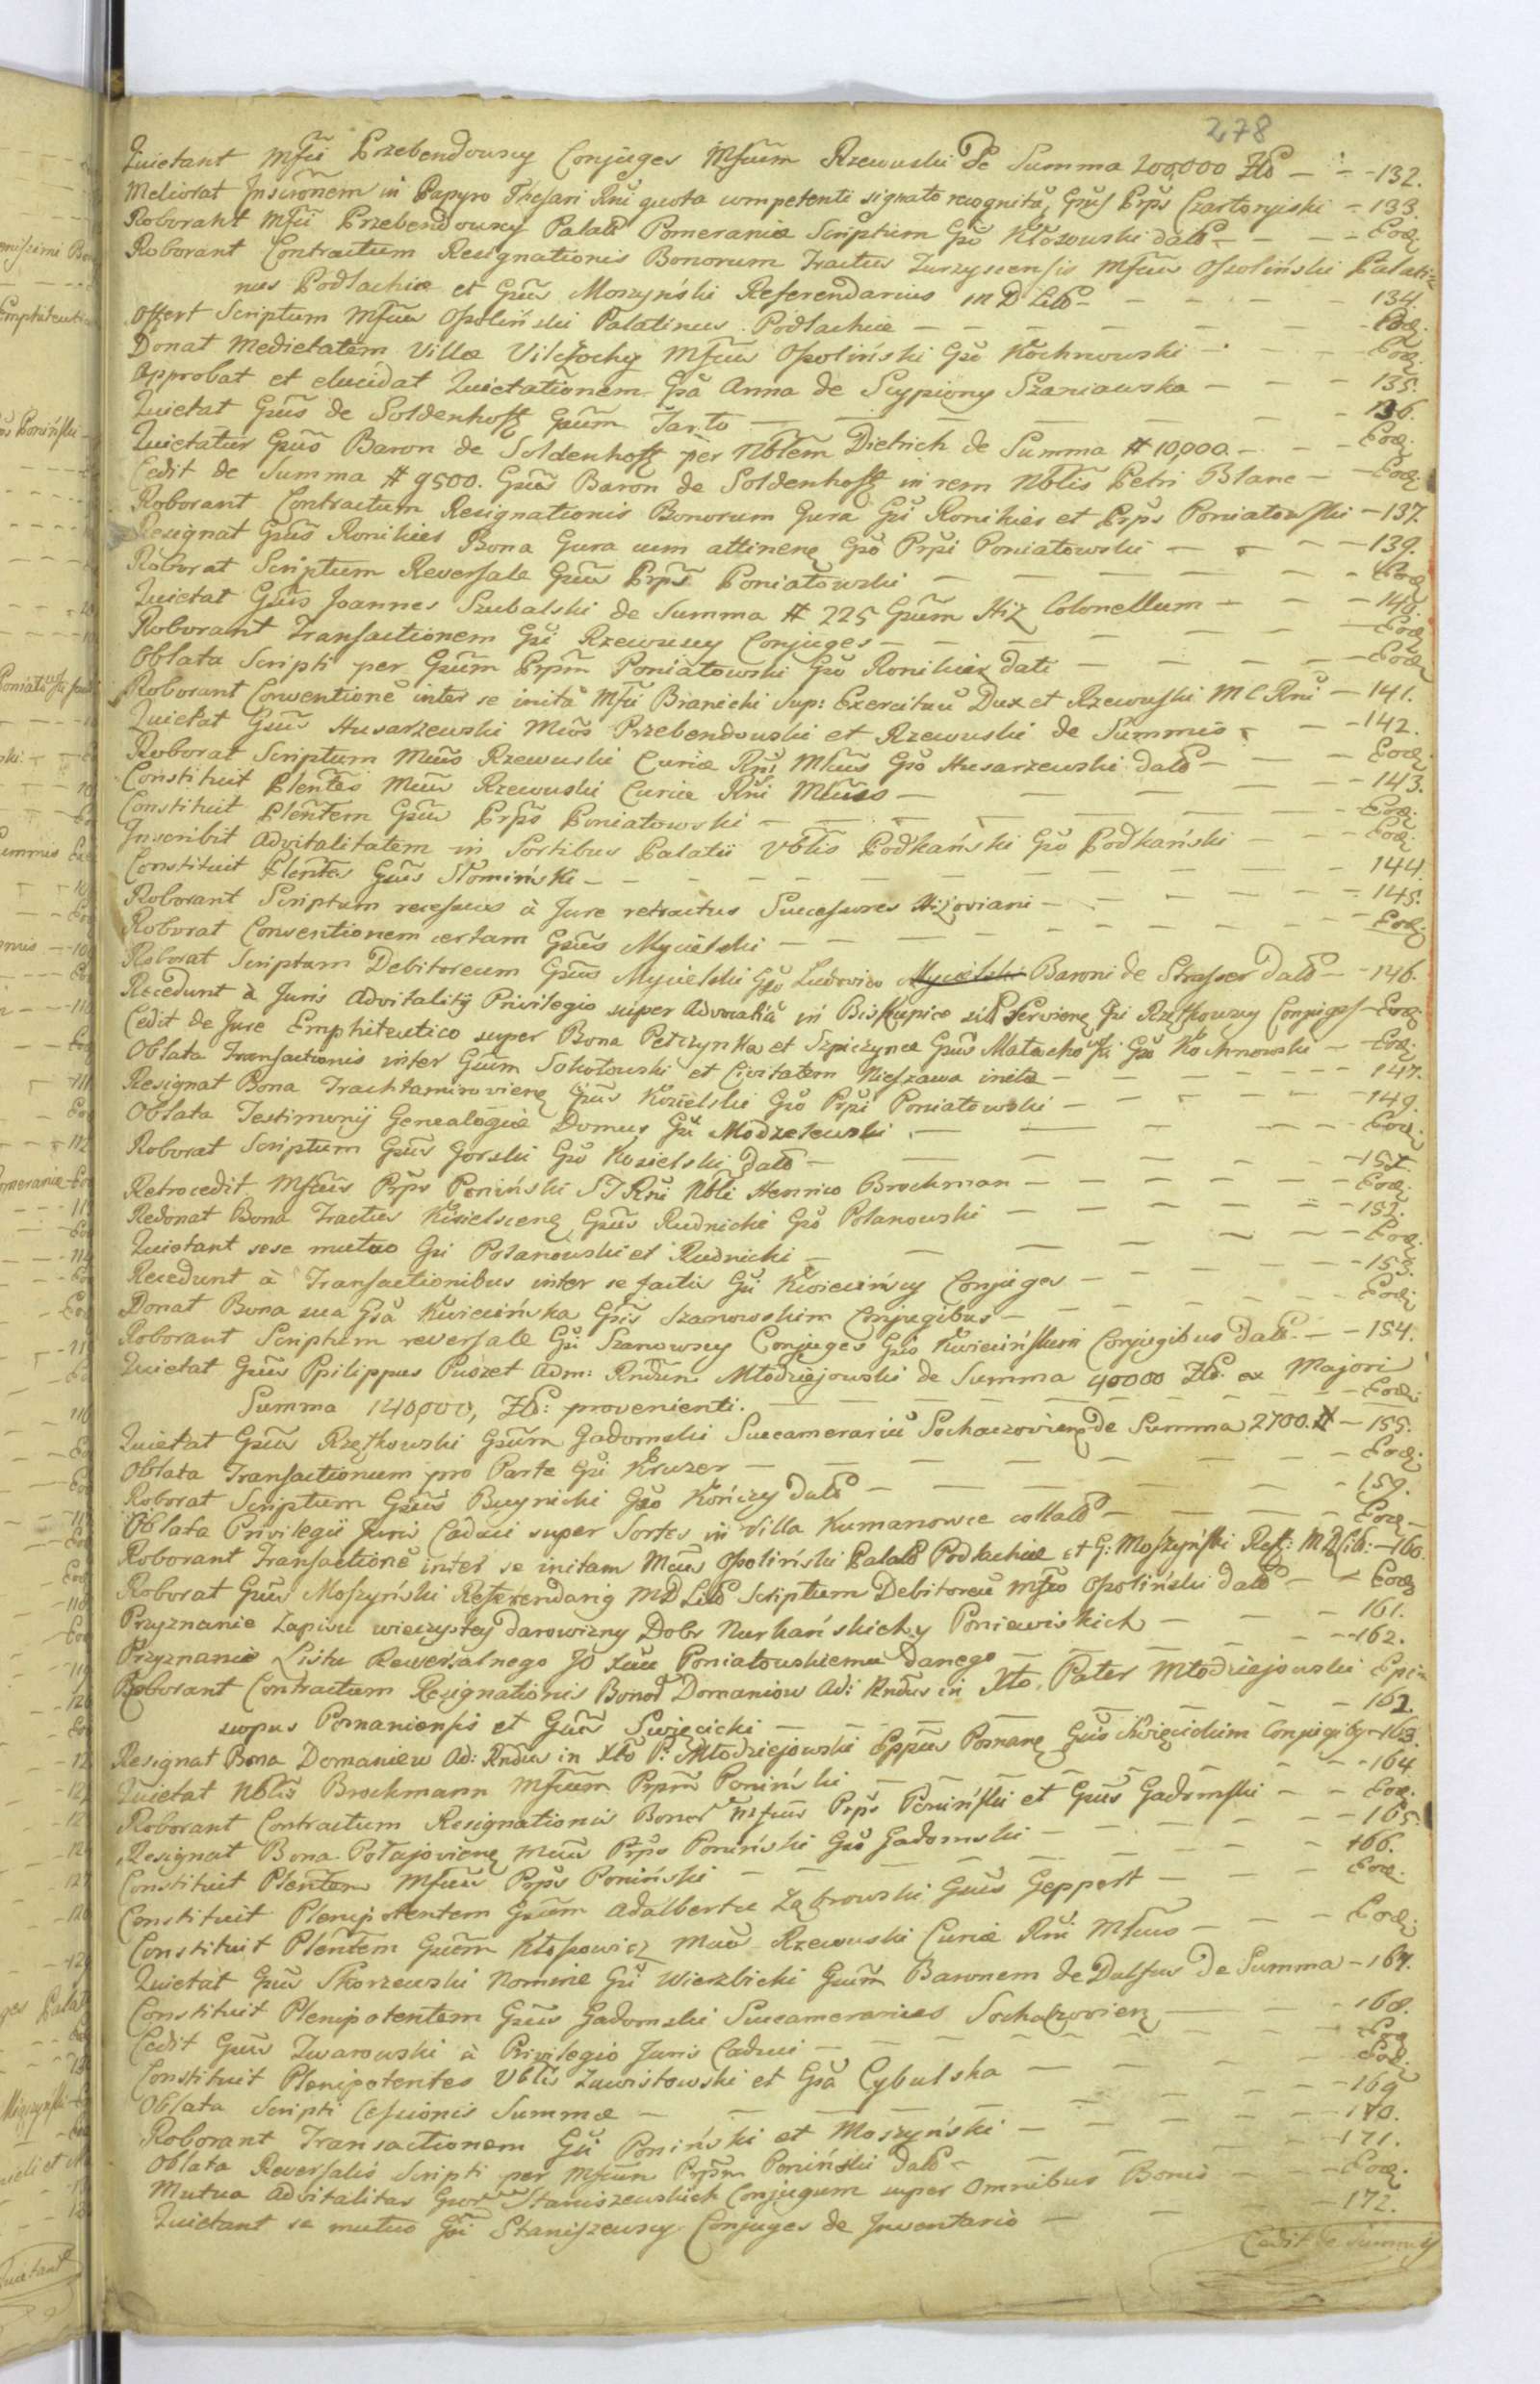 278
Quietant Mfci Przebendowscy Conjuges Mfcum Rzewuski De Summa 200,000 Zło — 132.
Meliorat Inscrōnem in Papyro Thesari Rni quota competenti signato recognitā, Gnus Prps Czartoryiski — 133.
Roborant Mfci Przebendowscy Palati Pomeraniæ Scriptum Gso Kłosowski dato — Eod:
Roborant Contractum Resignationis Bonorum Tractus Zurzyscensis Mfcus Ossoliński Palati-
nus Podlachiæ et Gsus Moszyński Referendarius M D Litt — 134.
Offert Scriptum Mfcus Ossoliński Palatinus Podlachiæ — Eod:
Donat Medietatem Villæ Mfcus Ossoliński Gso Kochnowski — Eod:
Approbat et elucidat Quietationem Gsa Anna de Scypiony Szaniawska — 135.
Quietat Gsus de Soldenhoff Gsum — 136.
Quietatur Gsus Baron de Soldenhoff per Nblem Dietrich de Summa # 10,000. — Eod:
Cedit de Summa # 9500. Gsus Baron de Soldenhoff in rem Nblis Petri Blanc — Eod:
Roborant Contractum Resignationis Bonorum Gura Gsi Ronikier et Prps Poniatowski — 137.
Resignat Gsus Ronikier Bona Gura cum attinen: Gso Prpi Poniatowski — 139.
Roborat Scriptum Reversale Gsus Prps Poniatowski — Eod:
Quietat Gsus Joannes Szubalski de Summa # 225 Gsum Hiz Colonellum — 140.
Roborant Transactionem Gsi Rzewuscy Conjuges — Eod:
Oblata Scripti per Gsum Prpm Poniatowski Gso Ronikier dati — Eod:
Roborant Conventionē inter se initā Mfci Branicki Sup: Exercituū Dux et Rzewuski M C Rni — 141.
Quietat Gsus Husarzewski Mcos Przebendowski et Rzewuski de Summis — 142.
Roborat Scriptum Mcus Rzewuski Curiæ Rni Mlcus Gso Husarzewski dato — Eod:
Constituit Plentes Mcus Rzewuski Curiæ Rni Mlcus — 143.
Constituit Plentem Gsus Prps Poniatowski — Eod:
Inscribit Advitalitatem in Sortibus Palatii Vblis Podkański Gso Podkański — Eod:
Constituit Plentes Gsus Słomiński — 144.
Roborant Scriptum recessus à Jure retractus Successores Hizoviani — 145.
Roborat Conventionem certam Gsus Mycielski — Eod:
Roborat Scriptum Debitoreum Gsus Mycielski Gso Ludovico Mycielski Baroni de Strasser Dato — 146.
Recedunt à Juris Advitalitÿ Privilegio super Advocatiā in Biskupice Gsi Conjuges — Eod:
Cedit de Jure Emphiteutico super Bona Petczynka et Szpiczynce Gsus Małachowski Gso Kochnowski — Eod:
Oblata Transactionis inter Gsum Sokołowski et Civitatem Nieszawa initæ — 147.
Resignat Bona Trachtamirovien: Gsus Kozielski Gso Prpi Poniatowski — 149.
Oblata Testimonij Genealogiæ Domus Gsi Modzelewski — Eod:
Roborat Scriptum Gsus Gorski Gso Kozielski Dato — 151.
Retrocedit Mfcus Prps Poniński S T Rni Nbli Henrico Brockman — Eod:
Redonat Bona Tractus Kisielscen: Gsus Rudnicki Gso Polanowski — 152.
Quietant sese mutuo Gsi Polanowski et Rudnicki — Eod:
Recedunt à Transactionibus inter se factis Gsi Kwiecińscy Conjuges — 153.
Donat Bona sua Gsa Kwiecińska Gsis Szanowskim Conjugibus — Eod:
Roborant Scriptum reversale Gsi Szanowscy Conjuges Gsis Kwiecińskim Conjugibus Dato — 154.
Quietat Gsus Philippus Puszet Adm: Rndum Młodziejowski de Summa 40000 Zło. ex Majori
Summa 140,000, Zło: provenienti. — Eod:
Quietat Gsus Rzętkowski Gsum Gadomski Succamerariū Sochaczovien: de Summa 2700. # — 155.
Oblata Transactionum pro Parte Gsi Kruzer — Eod:
Roborat Scriptum Gsus Buynicki Gso Kończy dato — 159.
Oblata Privilegii Juris Caduci super Sortes in Villa Kumanowce collato — Eod:
Roborant Transactionē inter se initam Mcus Ossoliński Palato Podlachiæ et G: Moszyński Ref: M D Lit: — 160.
Roborat Gsus Moszyński Referendarius M D Litt Scriptum Debitoreū Mfco Ossoliński dato — Eod:
Przyznanie Zapisu wieczystey Darowizny Dobr Nurkańskich y Poniewiskich — 161.
Przyznanie Listu Rewersalnego JO Xciu Poniatowskiemu danego — 162.
Roborant Contractum Resignationis Bonor Domaniow Ad: Rndus in Xto Pater Młodziejowski Epi-
scopus Posnaniensis et Gsus Swięcicki — 162.
Resignat Bona Domaniew Ad: Rndus in Xto P: Młodziejowski Eppus Posnan: Gsis Swięcickim Conjugib: — 163.
Quietat Nblis Brockmann Mfcum Prpm Poniński — 164.
Roborant Contractum Resignationis Bonor Mfcus Prps Poniński et Gsus Gadomski — Eod:
Resignat Bona Potajovien: Mcus Prps Poniński Gso Gadomski — 165.
Constituit Plentem Mfcus Prps Poniński — 166.
Constituit Plenipotentem Gsum Adalbertu Ząbrowski Gsus Geppert — Eod:
Constituit Plentem Gsum Kłossowicz Mcus Rzewuski Curiæ Rni Mlcus — Eod:
Quietat Gsus Skorzewski Nomine Gsi Wierzbicki Gsum Baronem de Dalfus De Summa — 167.
Constituit Plenipotentem Gsus Gadomski Succamerarius Sochaczovien: — 168.
Cedit Gsus Zwarowski à Privilegio Juris Caduci — Eod:
Constituit Plenipotentes Vblis Zawistowski et Gsa Cybulska — Eod:
Oblata Scripti Cessionis Summæ — 169
Roborant Transactionem Gsi Poniński et Moszyński — 170.
Oblata Reversalis Scripti per Mfcum Prpm Poniński Dato — 171.
Mutua Advitalitas Gsor Staniszewskich Conjugum super Omnibus Bonis — Eod:
Quietant se mutuo Gsi Staniszewscy Conjuges de Inventario — 172.
Cedit de Summis